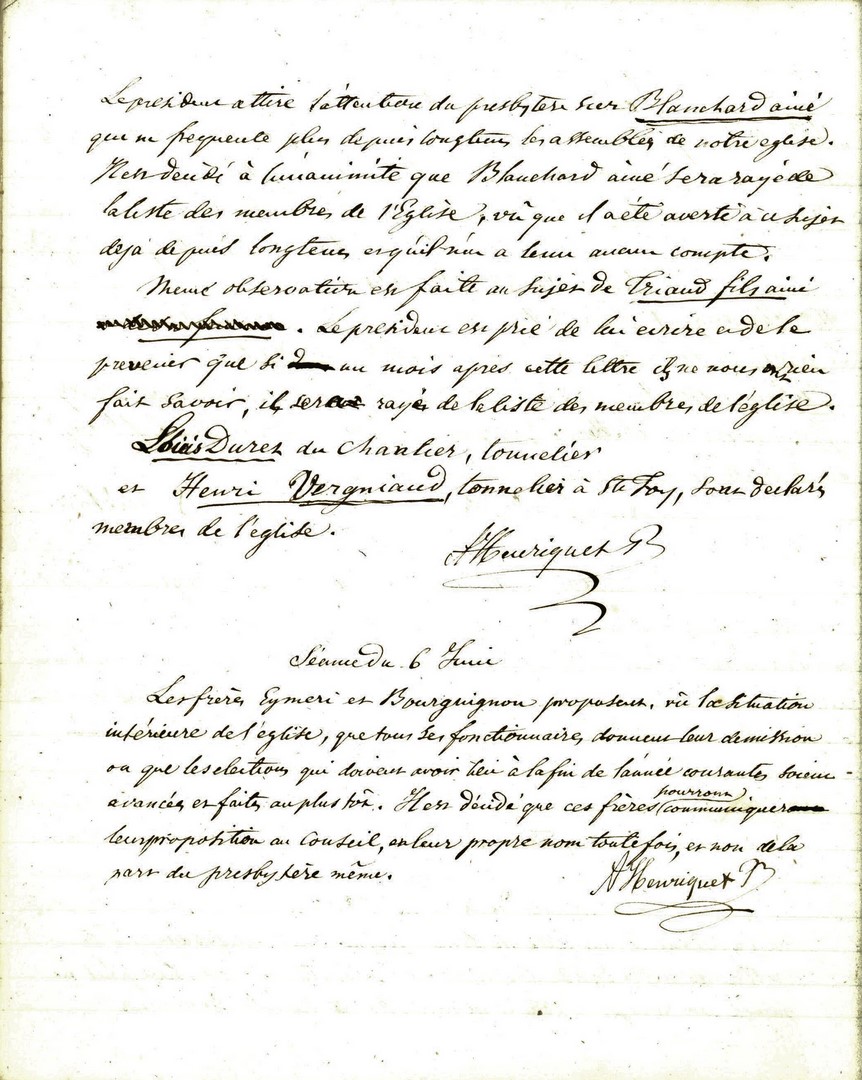 Le président attire l'attention du presbytère sur Blanchard ainé
qui ne frequente plus depuis longtems les assemblées de notre eglise.
Il est decidé à l'unanimité que Blanchard ainé sera rayé de
la liste des membres de l'Eglise, vû que il a été averti à ce sujet
déjà depuis longtems et qu'il n'en a tenu aucun compte.
Meme observation est faite au sujet de Triaud fils ainé
. Le président est prié de lui écrire et de le
prevenir que si un mois après cette lettre il ne nous a rien
fait savoir, il sera rayé de la liste des membres de l'église.
Louis Durez du Chantier, tonnelier
et Henri Vergniaud, tonnelier à Ste Foy, sont declarés
membres de l'église.
A Henriquet P
Séance du 6 Juin
Les frères Eymeri et Bourguignon proposent, vû la situation
intérieure de l'église, que tous ses fonctionnaires donnent leur demission
ou que les elections qui doivent avoir lieu à la fin de l'année courante soient
avancées et faites au plus tôt. Il est décidé que ces frères pourront communiquer
leur proposition au Conseil, en leur propre nom toutefois, et non de la
part du presbytère même.
A Henriquet P